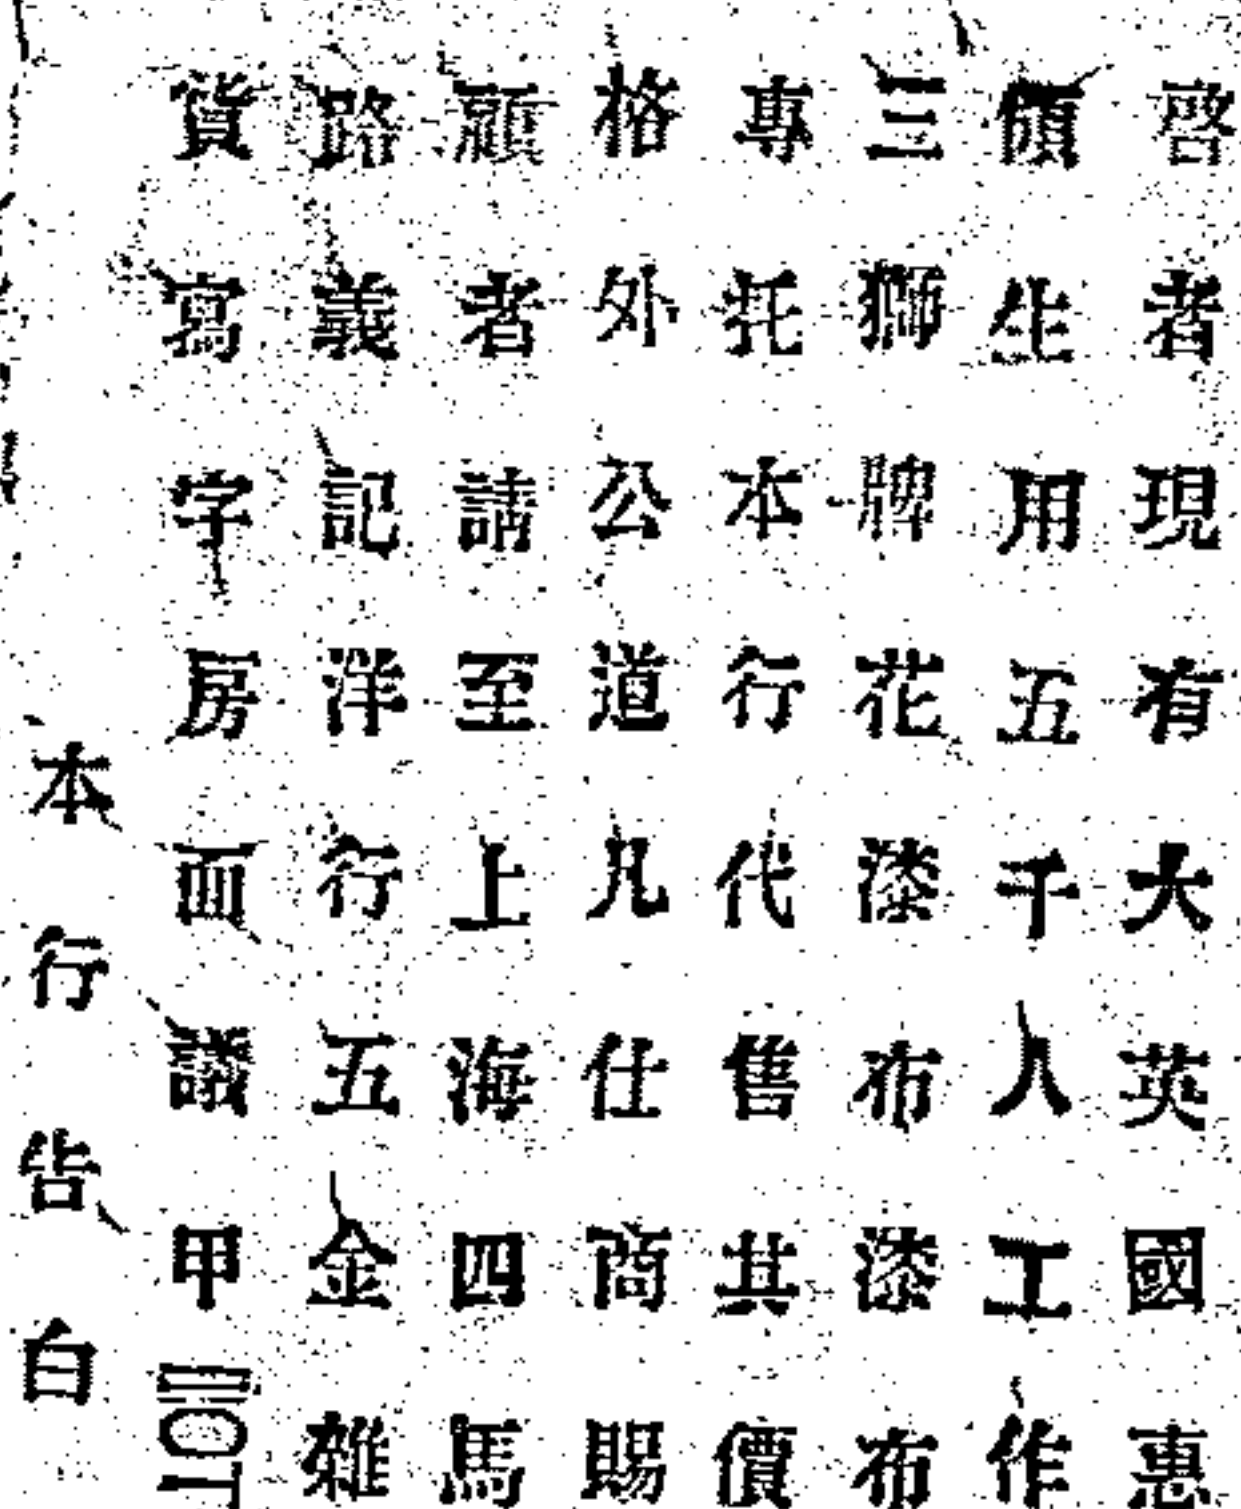 啓者現有大英國惠
傾生用五千人工作
三獅牌花漆布漆布
專托本行代售其價
格外公道凡仕商賜
顧者請至上海四馬
路義記洋行五金雜
貨寫字房面議甲
本行告白